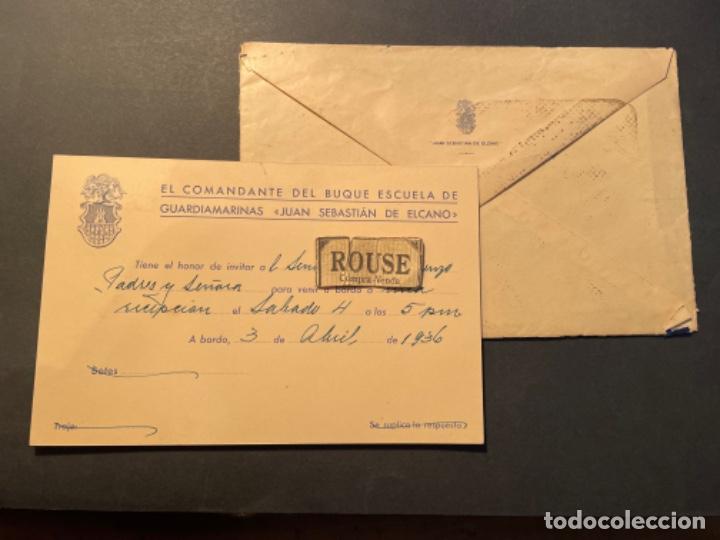 "JUAN SEBASTIAN DE ELCANO"
EL COMANDANTE DEL BUQUE ESCUELA DE
GUARDIAMARINAS «JUAN SEBASTIÁN DE ELCANO»
Tiene el honor de invitar a l
ROUSE
Compra-Venta
Padres y Señora para venir a bordo a una
recepcion el Sabado 4 a las 5 pm
A bordo, 3 de Abril, de 1936
Botes
Traje
Se suplica la respuesta
todocoleccion.net